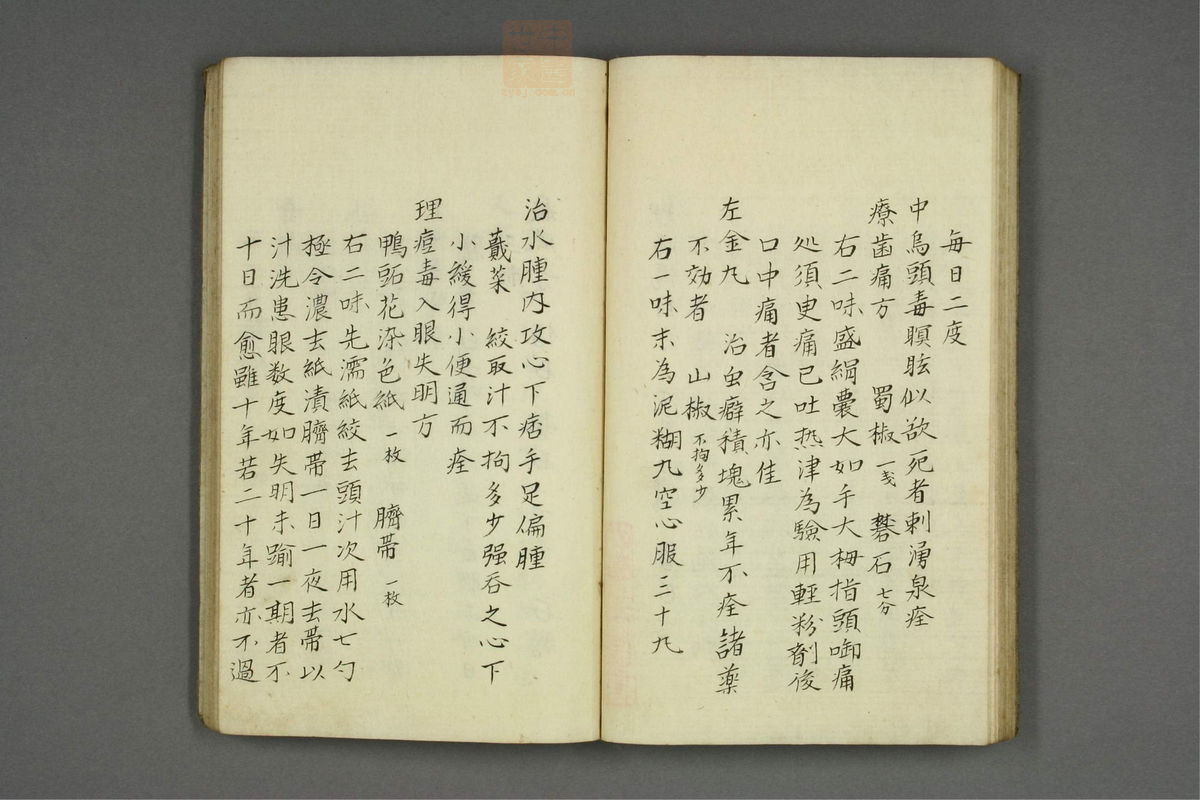 每日二度
中烏頭毒瞑眩似欲死者刺湧泉痊
療歯痛方　蜀椒一戔　礬石七分
右二味盛絹囊大如手大栂指頭啣痛
处須臾痛已吐热津為驗用輕粉劑後
口中痛者含之亦佳
左金丸　治虫癖積塊累年不痊諸薬
不効者　山椒不拘多少
右一味末為泥糊丸空心服三十丸
治水腫内攻心下痞手足偏腫
蕺菜　絞取汁不拘多少强吞之心下
小緩得小便通而痊
理痘毒入眼失明方
鴨跖花染色紙一枚　臍帯一枚
右二味先濡紙絞去頭汁次用水七勺
極令濃去紙漬臍帯一日一夜去帯以
汁洗患眼数度如失明未踰一期者不
十日而愈雖十年若二十年者亦不過